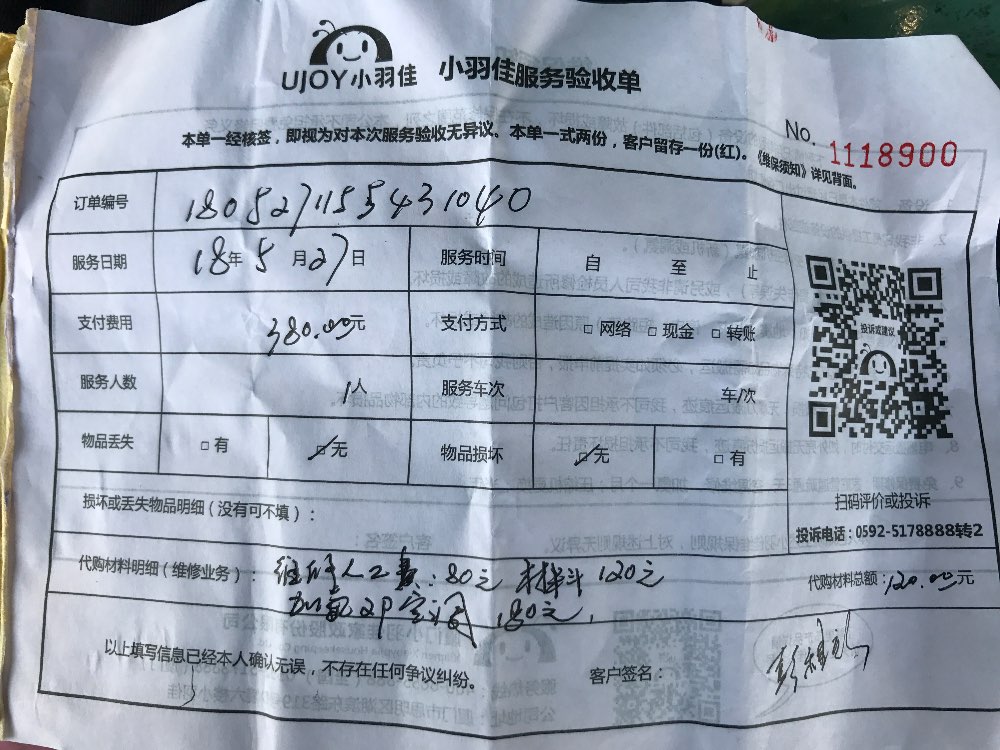 UJOY小羽佳 小羽佳服务验收单
本单一经核签，即视为对本次服务验收无异议。本单一式两份，客户留存一份(红)。《维保须知》详见背面。
No. 1118900
订单编号 180527115543 1040
服务日期 18年5月27日 服务时间 自 至 止
支付费用 380.00元 支付方式 □ 网络 □ 现金 □ 转账
服务人数 1人 服务车次 车/次
物品丢失 □ 有 □ 无 物品损坏 □ 无 □ 有
投诉或建议
扫码评价或投诉
投诉电话：0592-5178888转2
损坏或丢失物品明细（没有可不填）：
代购材料明细（维修业务）： 维修人工费：80元 120元
加氟2P空调 180元，
代购材料总额：120.00元
以上填写信息已经本人确认无误，不存在任何争议纠纷。 客户签名：